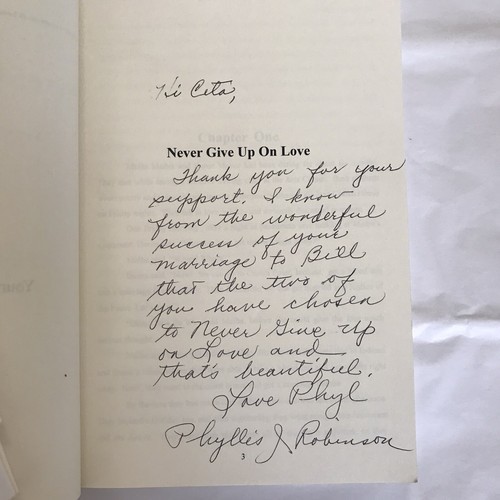 Hi Ceta,
Never Give Up On Love
Thank you for your
support. I know
from the wonderful
success of your
marriage to Bill
that the two of
you have chosen
to Never Give Up
on Love and
that's beautiful.
Love Phyl
Phyllis J Robinson
3